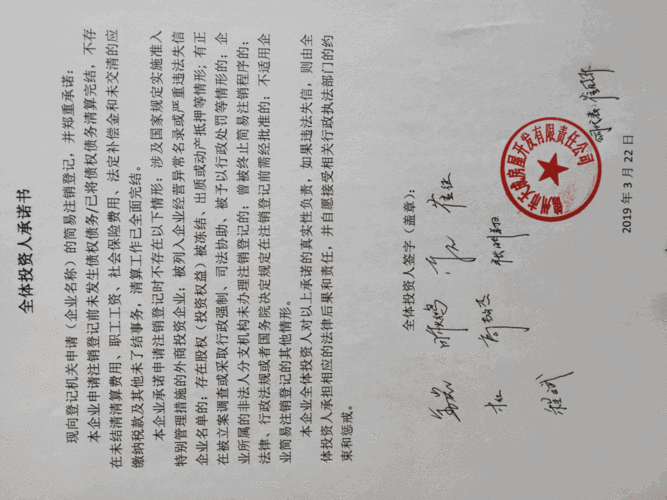 全体投资人承诺书
现向登记机关申请（企业名称）的简易注销登记，并郑重承诺：
本企业申请注销登记前未发生债权债务/已将债权债务清算完结，不存
在未结清清算费用、职工工资、社会保险费用、法定补偿金和未交清的应
缴纳税款及其他未了结事务，清算工作已全面完结。
本企业承诺申请注销登记时不存在以下情形：涉及国家规定实施准入
特别管理措施的外商投资企业；被列入企业经营异常名录或严重违法失信
企业名单的；存在股权（投资权益）被冻结、出质或动产抵押等情形；有正
在被立案调查或采取行政强制、司法协助、被予以行政处罚等情形的；企
业所属的非法人分支机构未办理注销登记的；曾被终止简易注销程序的；
法律、行政法规或者国务院决定规定在注销登记前需经批准的；不适用企
业简易注销登记的其他情形。
本企业全体投资人对以上承诺的真实性负责，如果违法失信，则由全
体投资人承担相应的法律后果和责任，并自愿接受相关行政执法部门的约
束和惩戒。
全体投资人签字（盖章）：
程斌
房屋开发有限责任公司
2019 年 3 月 22 日